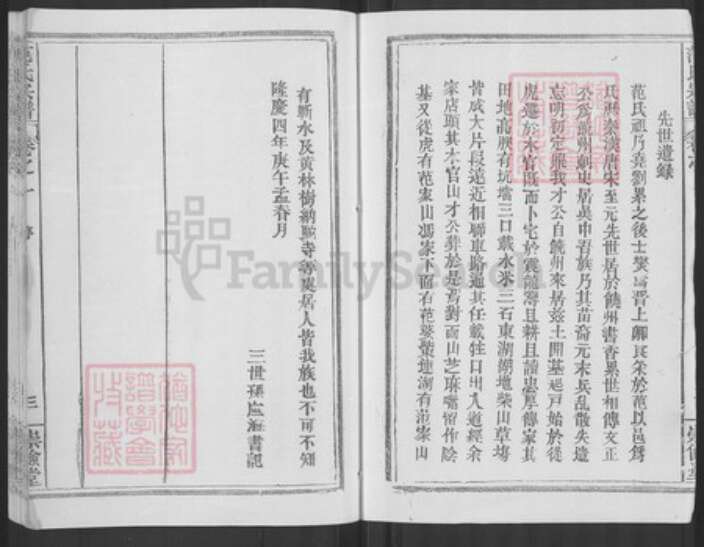 先世遺錄
范氏祖乃堯劉累之後士燮為晉上卿食采於范以邑為
氏歷秦漢唐宋至元先世居於饒州書香累世相傳文正
公為饒州刺史居吳中吾族乃其苗裔元末兵亂散失遺
忘明初定鼎我才公自饒州來居茲土開基起戶始於從
虎遷於水官既而卜宅於震龍灣且耕且讀忠厚傳家其
田地高原有坑壋三口載水米三石東湖湖地柴山草塲
皆成大片段遠近相聯車路通其任載牲口出入道經余
家店頭其水官山才公葬於是焉對面山芝麻嘴留作陰
基又從虎有范家山馮家下面有范婆墊地湖有范家山
有蘄水及黃林樹納縣寺等處居人皆我族也不可不知
隆慶四年庚午孟春月
三世孫應海書記
范氏宗譜
卷之一
序
三
崇儉堂
FamilySearch